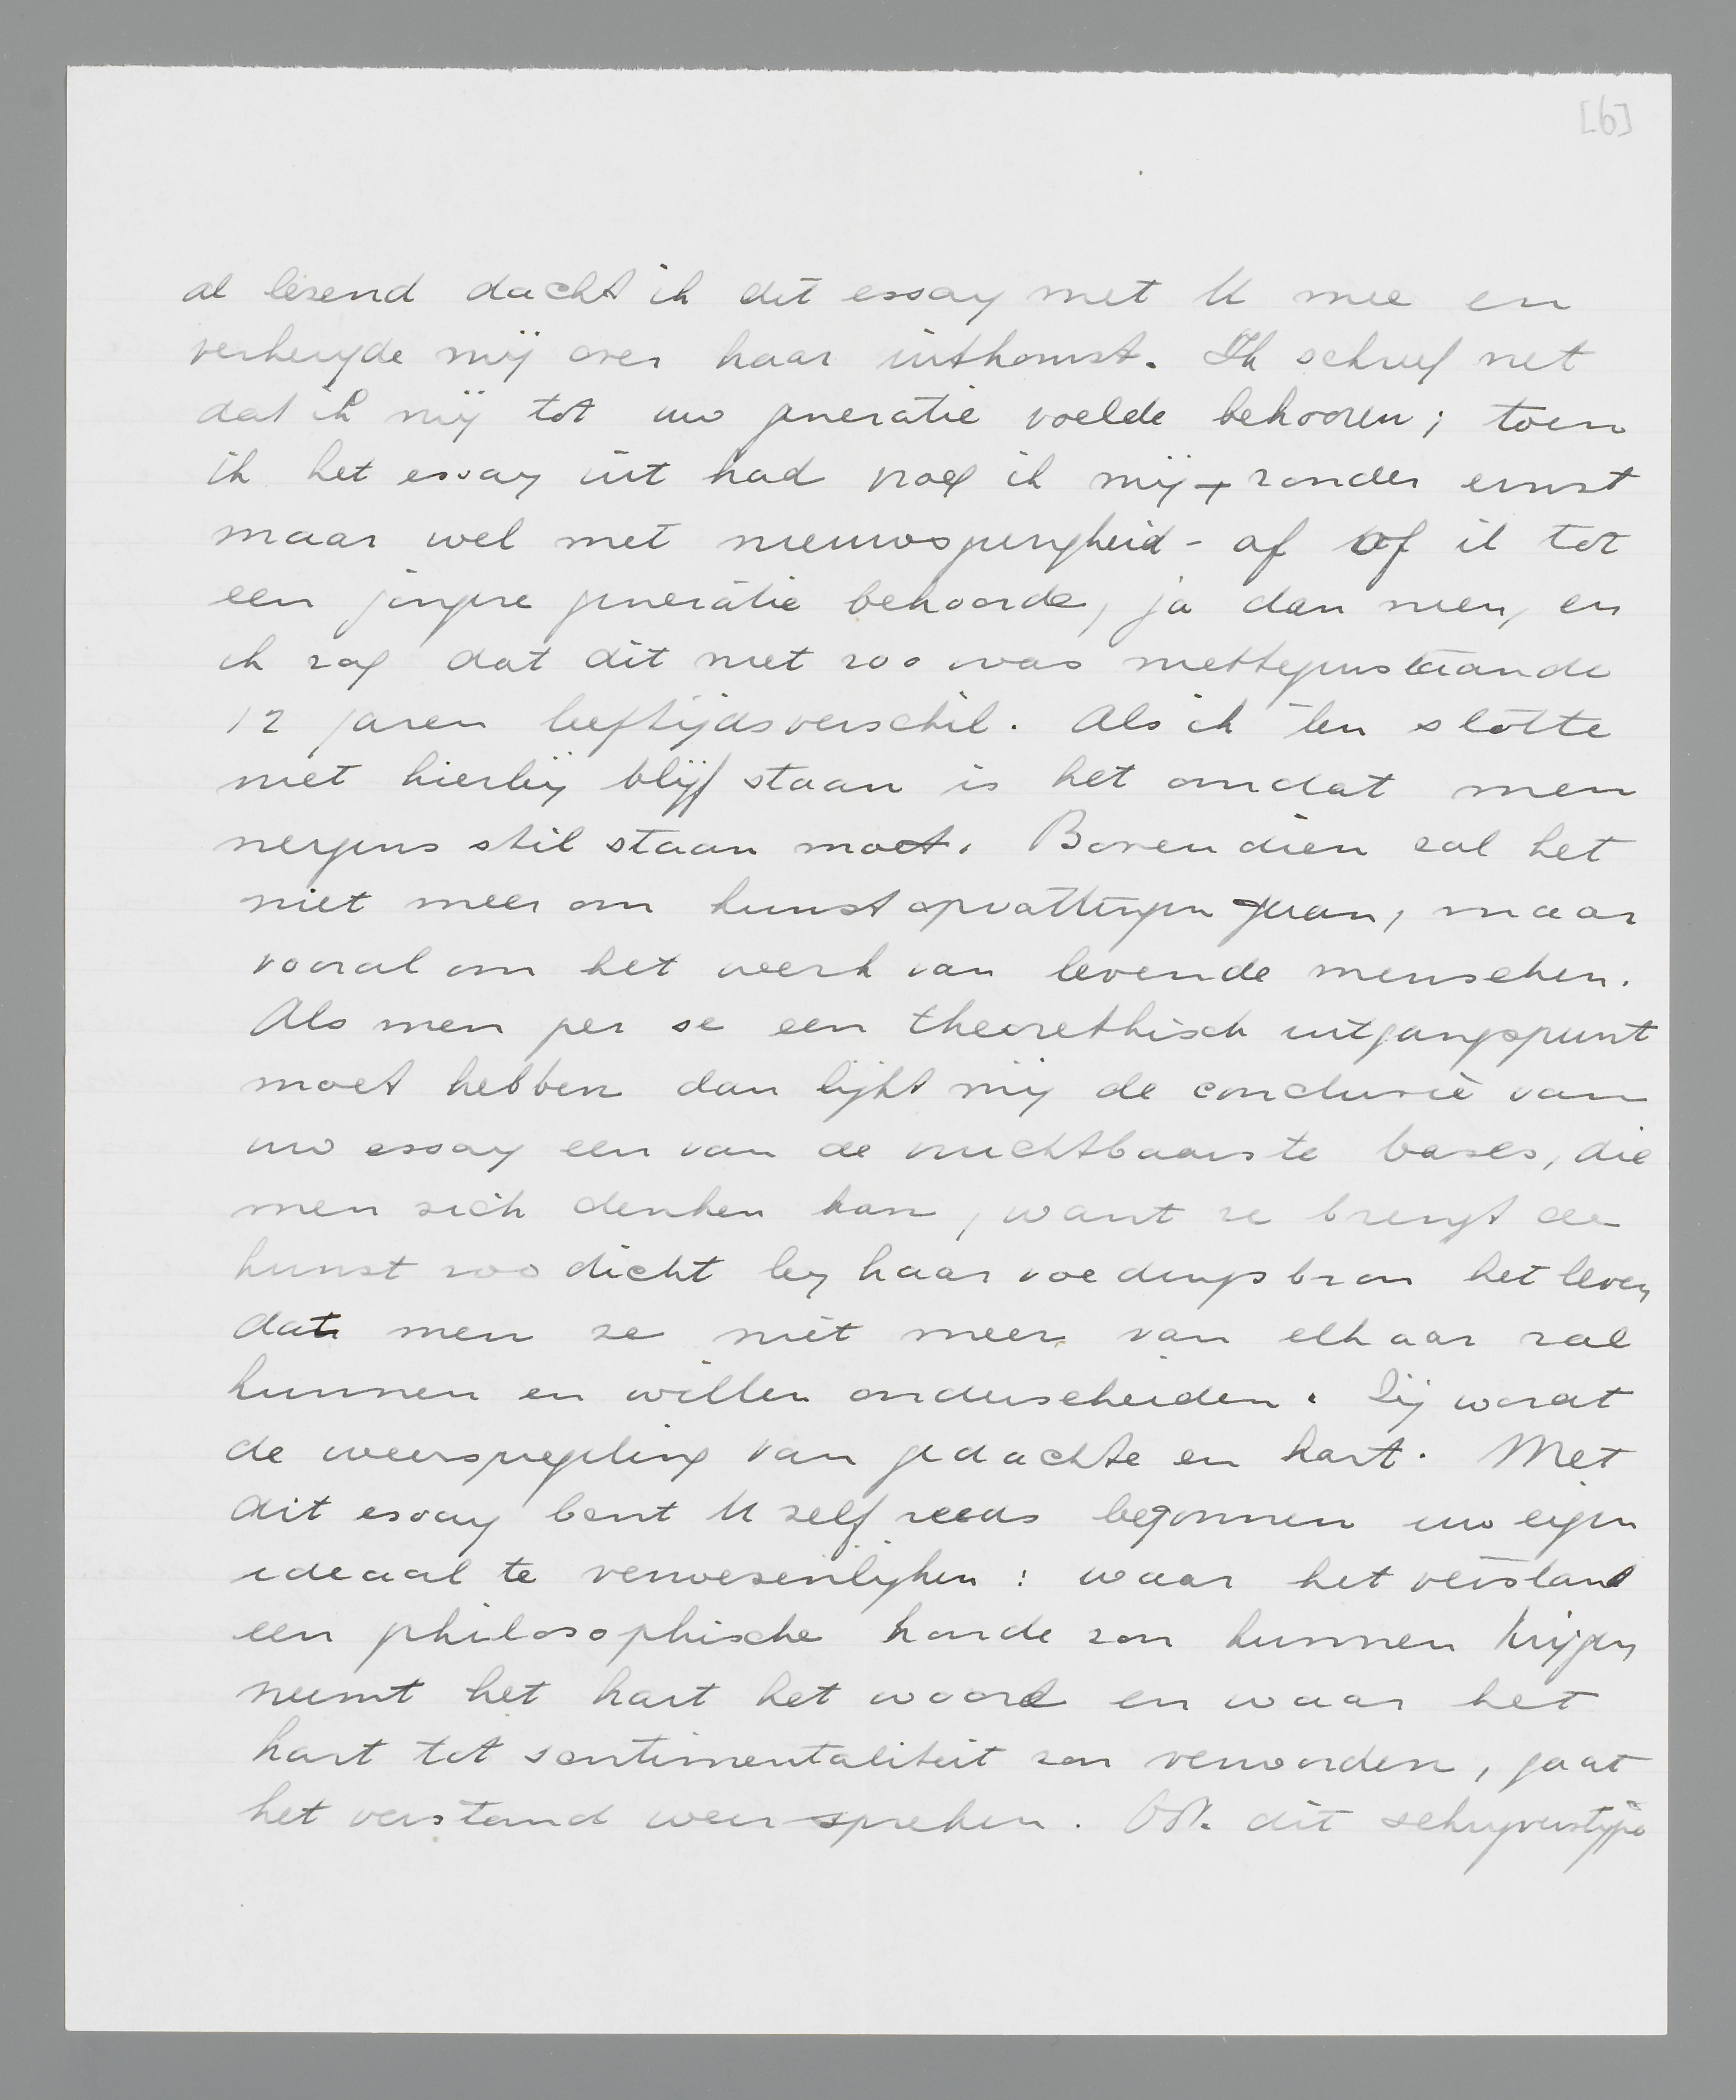 [6]
al lezend dacht ik dit essay met U mee en
verheugde mij over haar uitkomst. Ik schreef net
dat ik mij tot uw generatie voelde behooren; toen
ik het essay uit had vroeg ik mij - zonder ernst
maar wel met nieuwsgierigheid - af of ik tot
een jongere generatie behoorde, ja dan neen, en
ik zag dat dit niet zoo was niettegenstaande
12 jaren leeftijdsverschil. Als ik ten slotte
niet hierbij blijf staan is het omdat men
nergens stil staan moet. Bovendien zal het
niet meer om kunstopvattingen gaan, maar
vooral om het werk van levende menschen.
Als men per se een theorethisch uitgangspunt
moet hebben dan lijkt mij de conclusie van
uw essay een van de vruchtbaarste bases, die
men zich denken kan, want ze brengt de
kunst zoo dicht bij haar voedingsbron het leven
dat men ze niet meer van elkaar zal
kunnen en willen onderscheiden. Zij wordt
de weerspiegeling van gedachte en hart. Met
dit essay bent U zelf reeds begonnen uw eigen
ideaal te verwezenlijken: waar het verstand
een philosophische harde zou kunnen krijgen
neemt het hart het woord en waar het
hart tot sentimentaliteit zou verworden, gaat
het verstand weer spreken. Ook dit schrijverstype